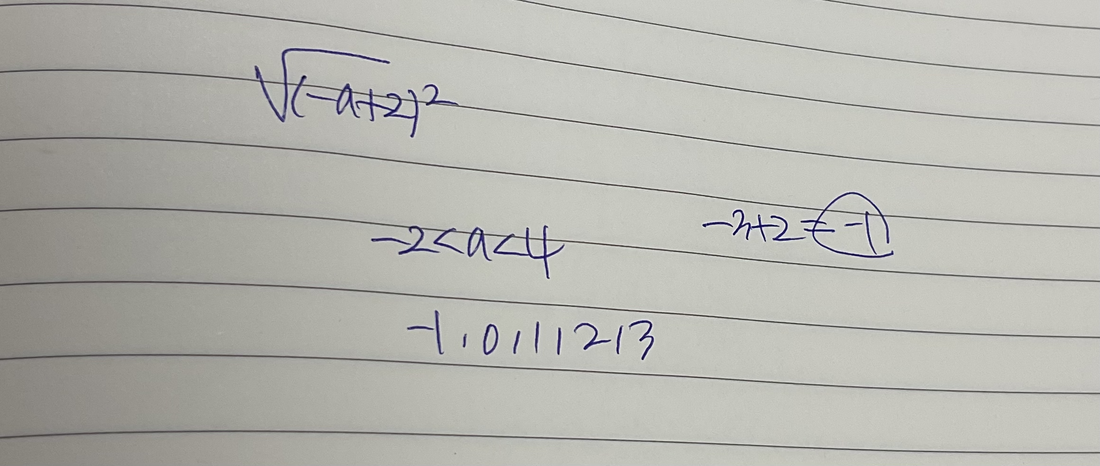 √(-a+2)²
-2<a<4
-3+2=-1
-1,0,1,2,3